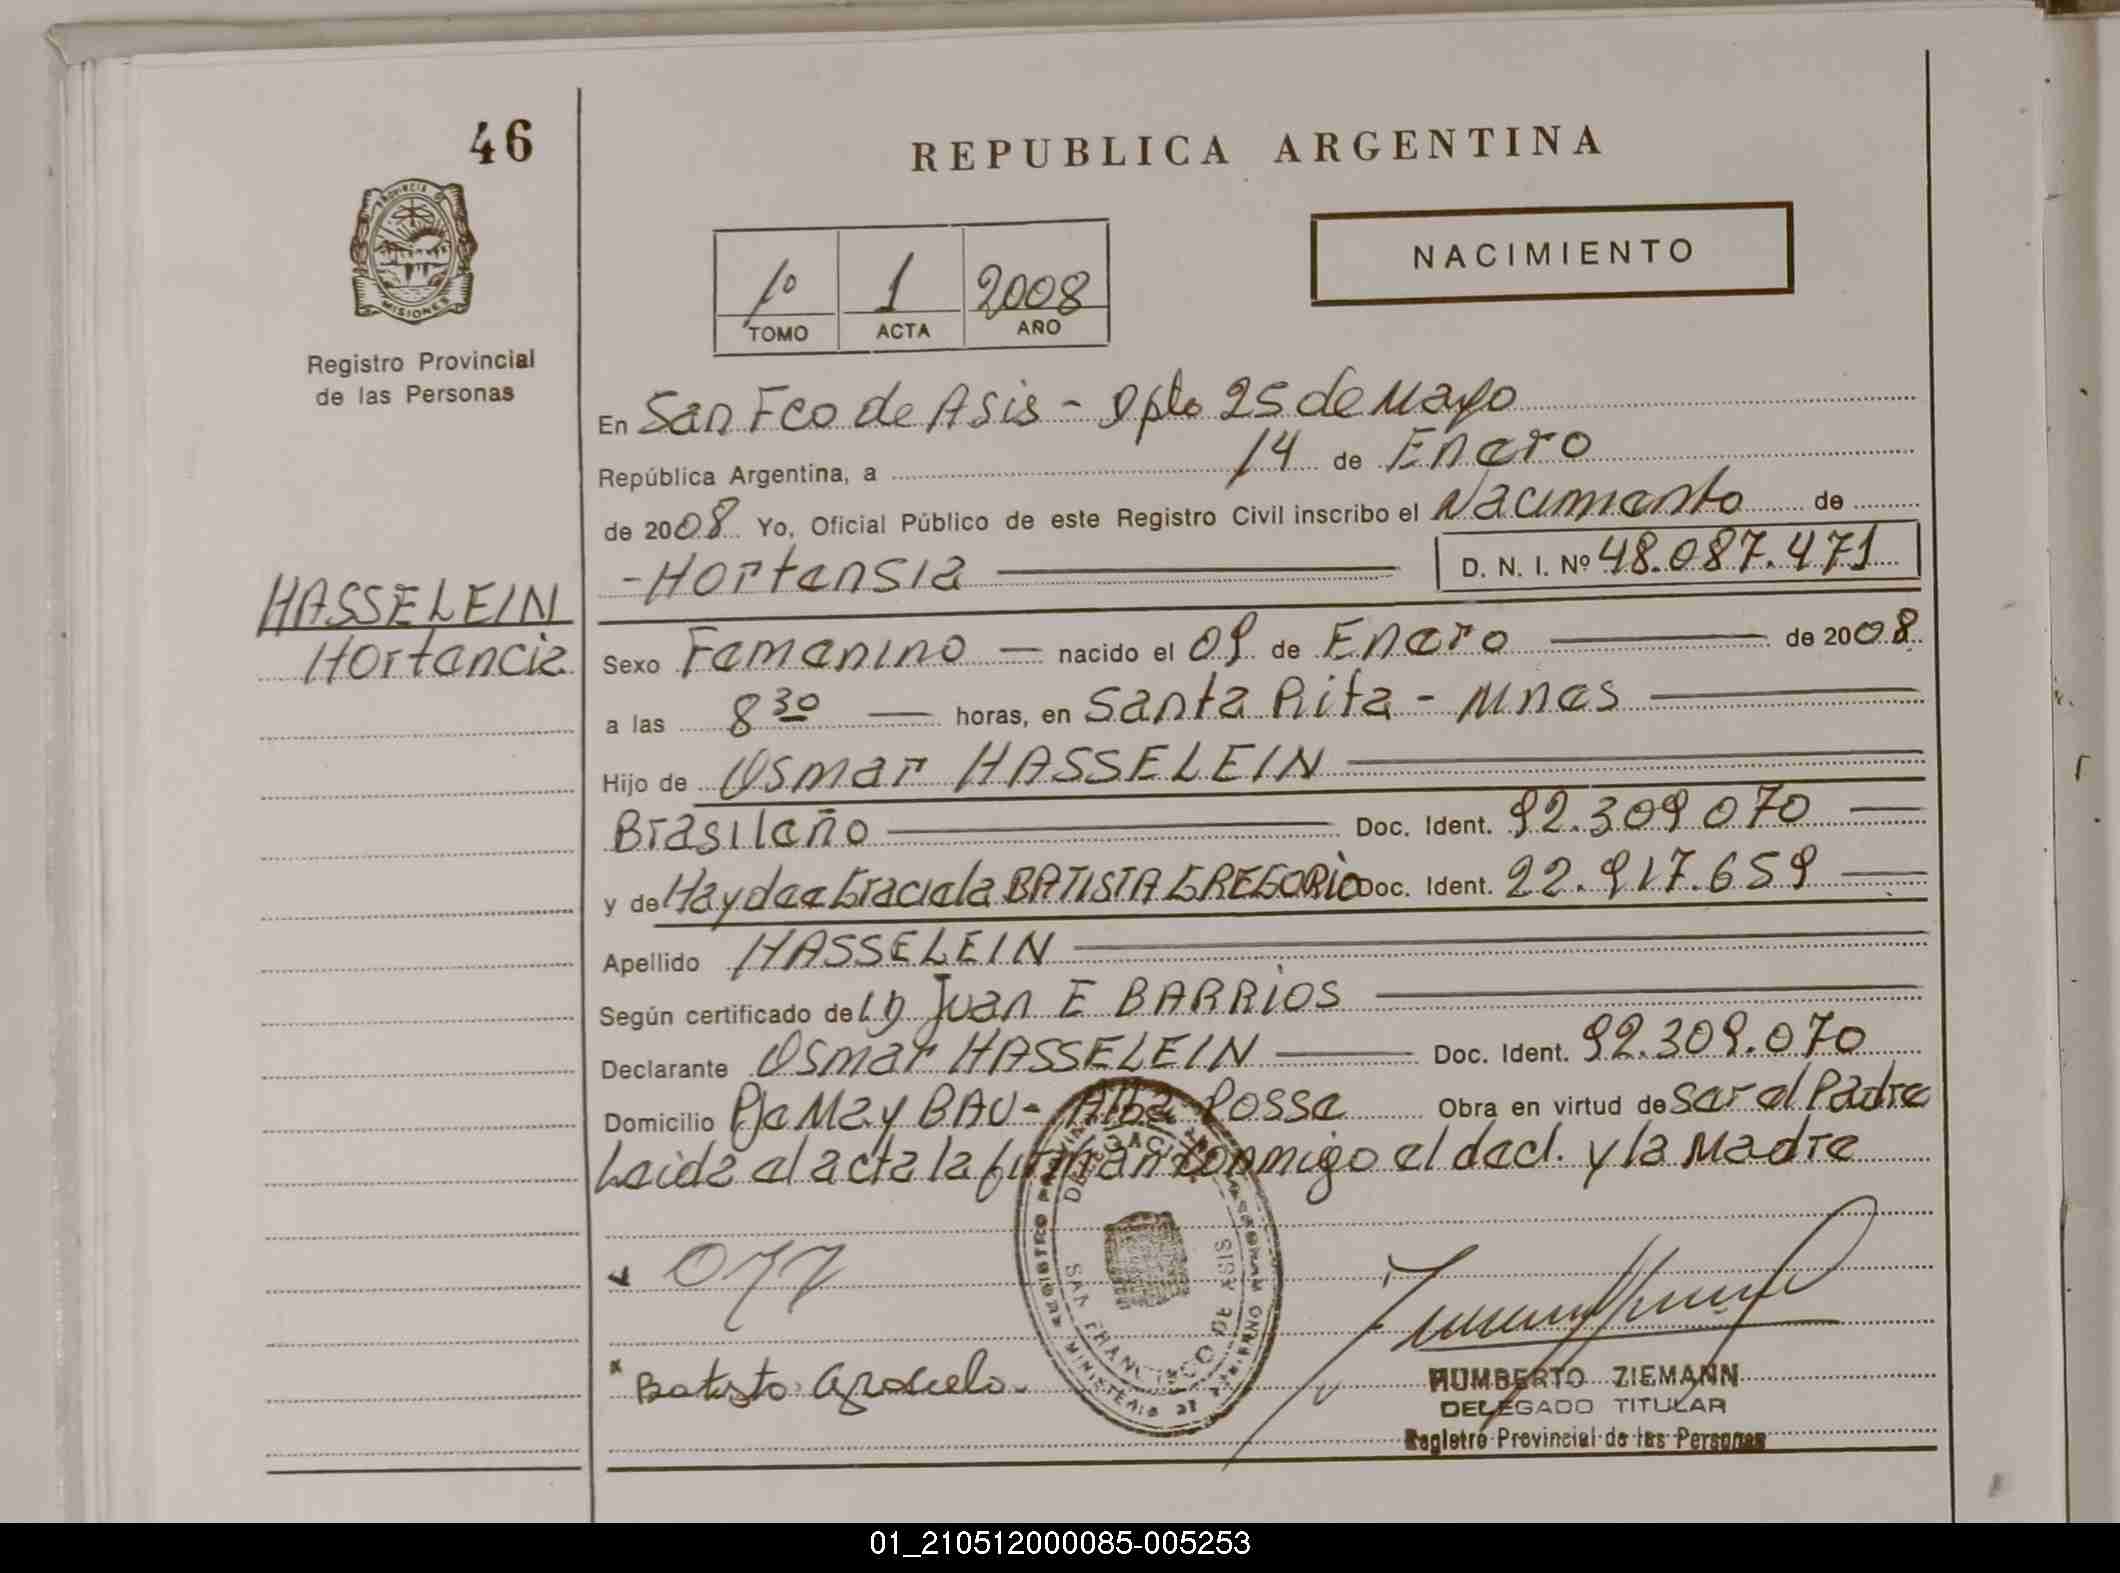 46
REPUBLICA ARGENTINA
PROVINCIA D
MISIONES
Registro Provincial
de las Personas
1º 1 2008
TOMO ACTA AÑO
NACIMIENTO
En San Fco de Asis - Dpto 25 de Mayo
República Argentina, a 14 de Enero
de 2008 Yo, Oficial Público de este Registro Civil inscribo el Nacimiento de
- Hortensia D. N. I. Nº 48.087.471
HASSELEIN
Hortencia
Sexo Femenino nacido el 09 de Enero de 2008
a las 8 30 horas, en Santa Rita - Mnes
Hijo de Osmar HASSELEIN
Brasileño Doc. Ident. 92.309070
y de Haydee Graciela BATISTA GREGORIO Doc. Ident. 22.917.659
Apellido HASSELEIN
Según certificado de Juan E BARRIOS
Declarante Osmar HASSELEIN Doc. Ident. 92.309.070
Domicilio Pje May BAU - Alba Posse Obra en virtud de Ser el Padre
Leida el acta la firman conmigo el decl. y la Madre
SAN FRANCISCO DE ASIS
MINISTERIO DE
Batista Graciela
HUMBERTO ZIEMANN
DELEGADO TITULAR
Registro Provincial de las Personas
01_210512000085-005253